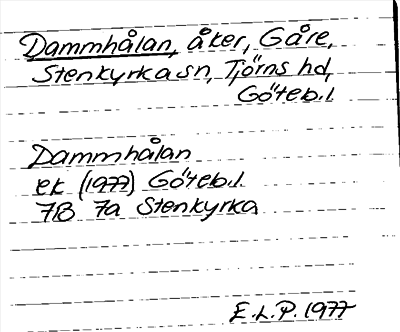 Dammhålan, åker, Gåre,
Stenkyrka sn, Tjörns hd,
Göteb.l.
Dammhålan
ek (1977) Göteb.l.
7B 7a Stenkyrka
E.L.P. 1977